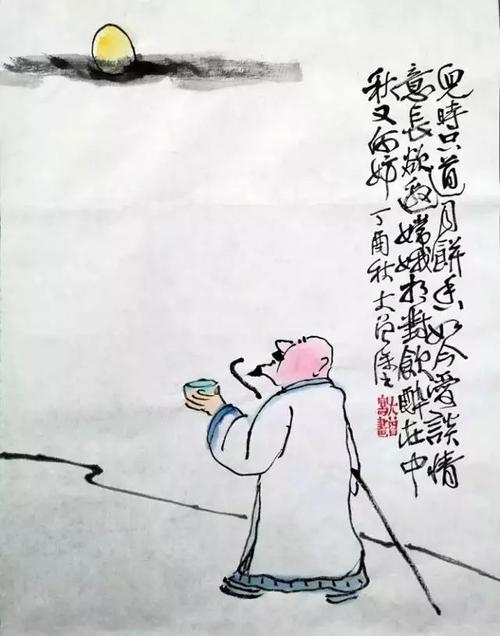 兒時只道月餅香如今愛談情
意長欲邀嫦娥相對飲醉在中
秋又何妨 丁酉秋